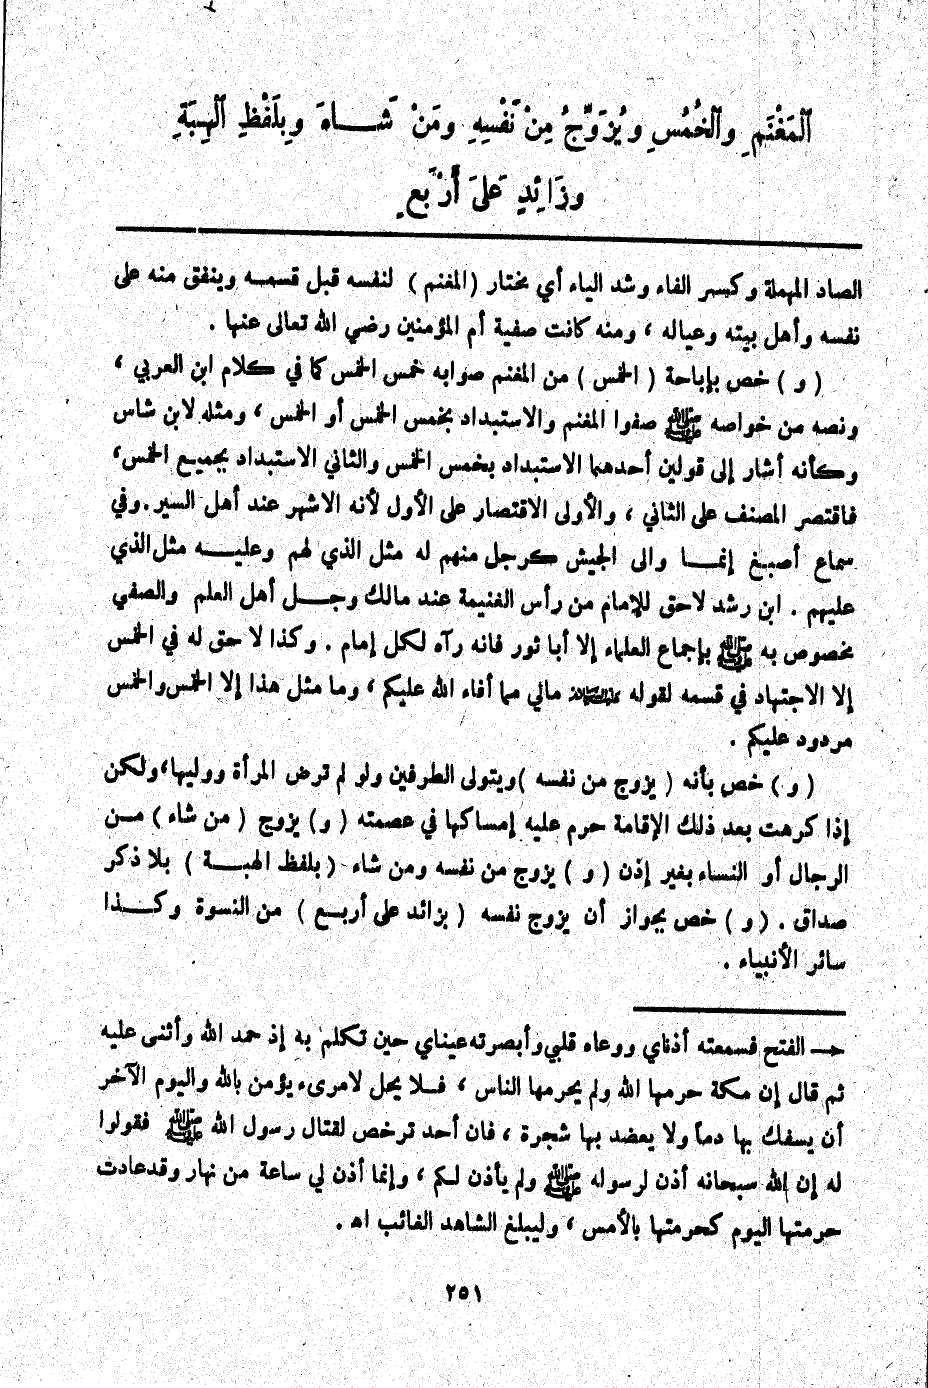 ٱلْمَغْنَمِ وٱلْخُمُسِ ويُزَوِّجُ مِنْ نَفْسِهِ ومَنْ شَاءَ وبِلَفْظِ ٱلْهِبَةِ
وزَائِدٍ عَلىَ أَرْبَعٍ
الصاد المهملة وكسر الفاء وشد الياء أي يختار (المغنم) لنفسه قبل قسمه وينفق منه على
نفسه وأهل بيته وعياله ، ومنه كانت صفية أم المؤمنين رضي الله تعالى عنها .
( و ) خص بإباحة ( الخمس ) من المغنم صوابه خمس الخمس كما في كلام ابن العربي ،
ونصه من خواصه ﷺ صفوا المغنم والاستبداد بخمس الخمس أو الخمس ، ومثله لابن شاس
وكأنه أشار إلى قولين أحدهما الاستبداد بخمس الخمس والثاني الاستبداد بجميع الخمس،
فاقتصر المصنف على الثاني ، والأولى الاقتصار على الأول لأنه الاشهر عند أهل السير.وفي
سماع أصبغ إنما والى الجيش كرجل منهم له مثل الذي لهم وعليه مثل الذي
عليهم . ابن رشد لاحق للإمام من رأس الغنيمة عند مالك وجل أهل العلم والصفي
مخصوص به ﷺ بإجماع العلماء إلا أبا ثور فانه رآه لكل إمام . وكذا لا حق له في الخمس
إلا الاجتهاد في قسمه لقوله مالي مما أفاء الله عليكم ، وما مثل هذا إلا الخمس والخمس
مردود عليكم .
( و ) خص بأنه ( يزوج من نفسه )ويتولى الطرفين ولو لم ترض المرأة ووليها،ولكن
إذا كرهت بعد ذلك الإقامة حرم عليه إمساكها في عصمته ( و) يزوج ( من شاء ) من
الرجال أو النساء بغير إذن ( و ) يزوج من نفسه ومن شاء ( بلفظ الهبة ) بلا ذكر
صداق . ( و ) خص بجواز أن يزوج نفسه ( بزائد على أربع ) من النسوة وكذا
سائر الأنبياء .
— الفتح فسمعته أذناي ووعاه قلبي وأبصرته عيناي حين تكلم به إذ حمد الله وأثنى عليه
ثم قال إن مكة حرمها الله ولم يحرمها الناس ، فلا يحل لامرىء يؤمن بالله واليوم الآخر
أن يسفك بها دماً ولا يعضد بها شجرة ، فان أحد ترخص لقتال رسول الله ﷺ فقولوا
له إن الله سبحانه أذن لرسوله ﷺ ولم يأذن لكم ، وإنما أذن لي ساعة من نهار وقد عادت
حرمتها اليوم كحرمتها بالأمس ، وليبلغ الشاهد الغائب اه .
٢٥١